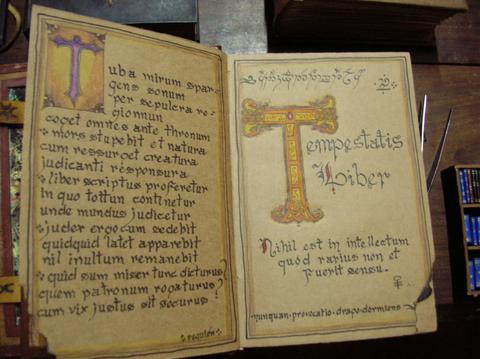 Tuba mirum spar
gens sonum
per sepulcra re-
gionnun
coget omnes ante thronum
mors stupebit et natura
cum ressurget creatura
judicanti responsura
liber scriptus proferetur
in quo tottun continetur
unde mundus judicetur
juder ergo cum sedebit
quidquid latet apparebit
nil inultum remanebit
quid sum miser tunc dicturus?
quem patronum rogaturus?
cum vix justus sit securus
requien
Tempestatis
Liber
Nihil est in intellectum
quod rarius non et
fuerit sensu.
nunquan · provocatio · drapo · dormiens